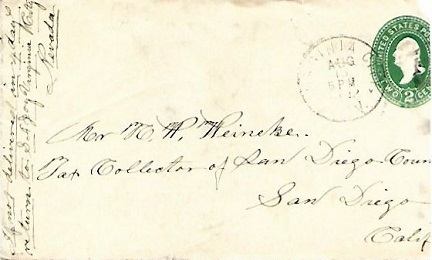 If not delivered in 10 days
return to Virginia City
Nevada
VIRGINIA C
AUG
5 PM
UNITED STATES POS
2 CE
Mr H. W. Heineke.
Tax Collector of San Diego Coun
San Diego
Calif